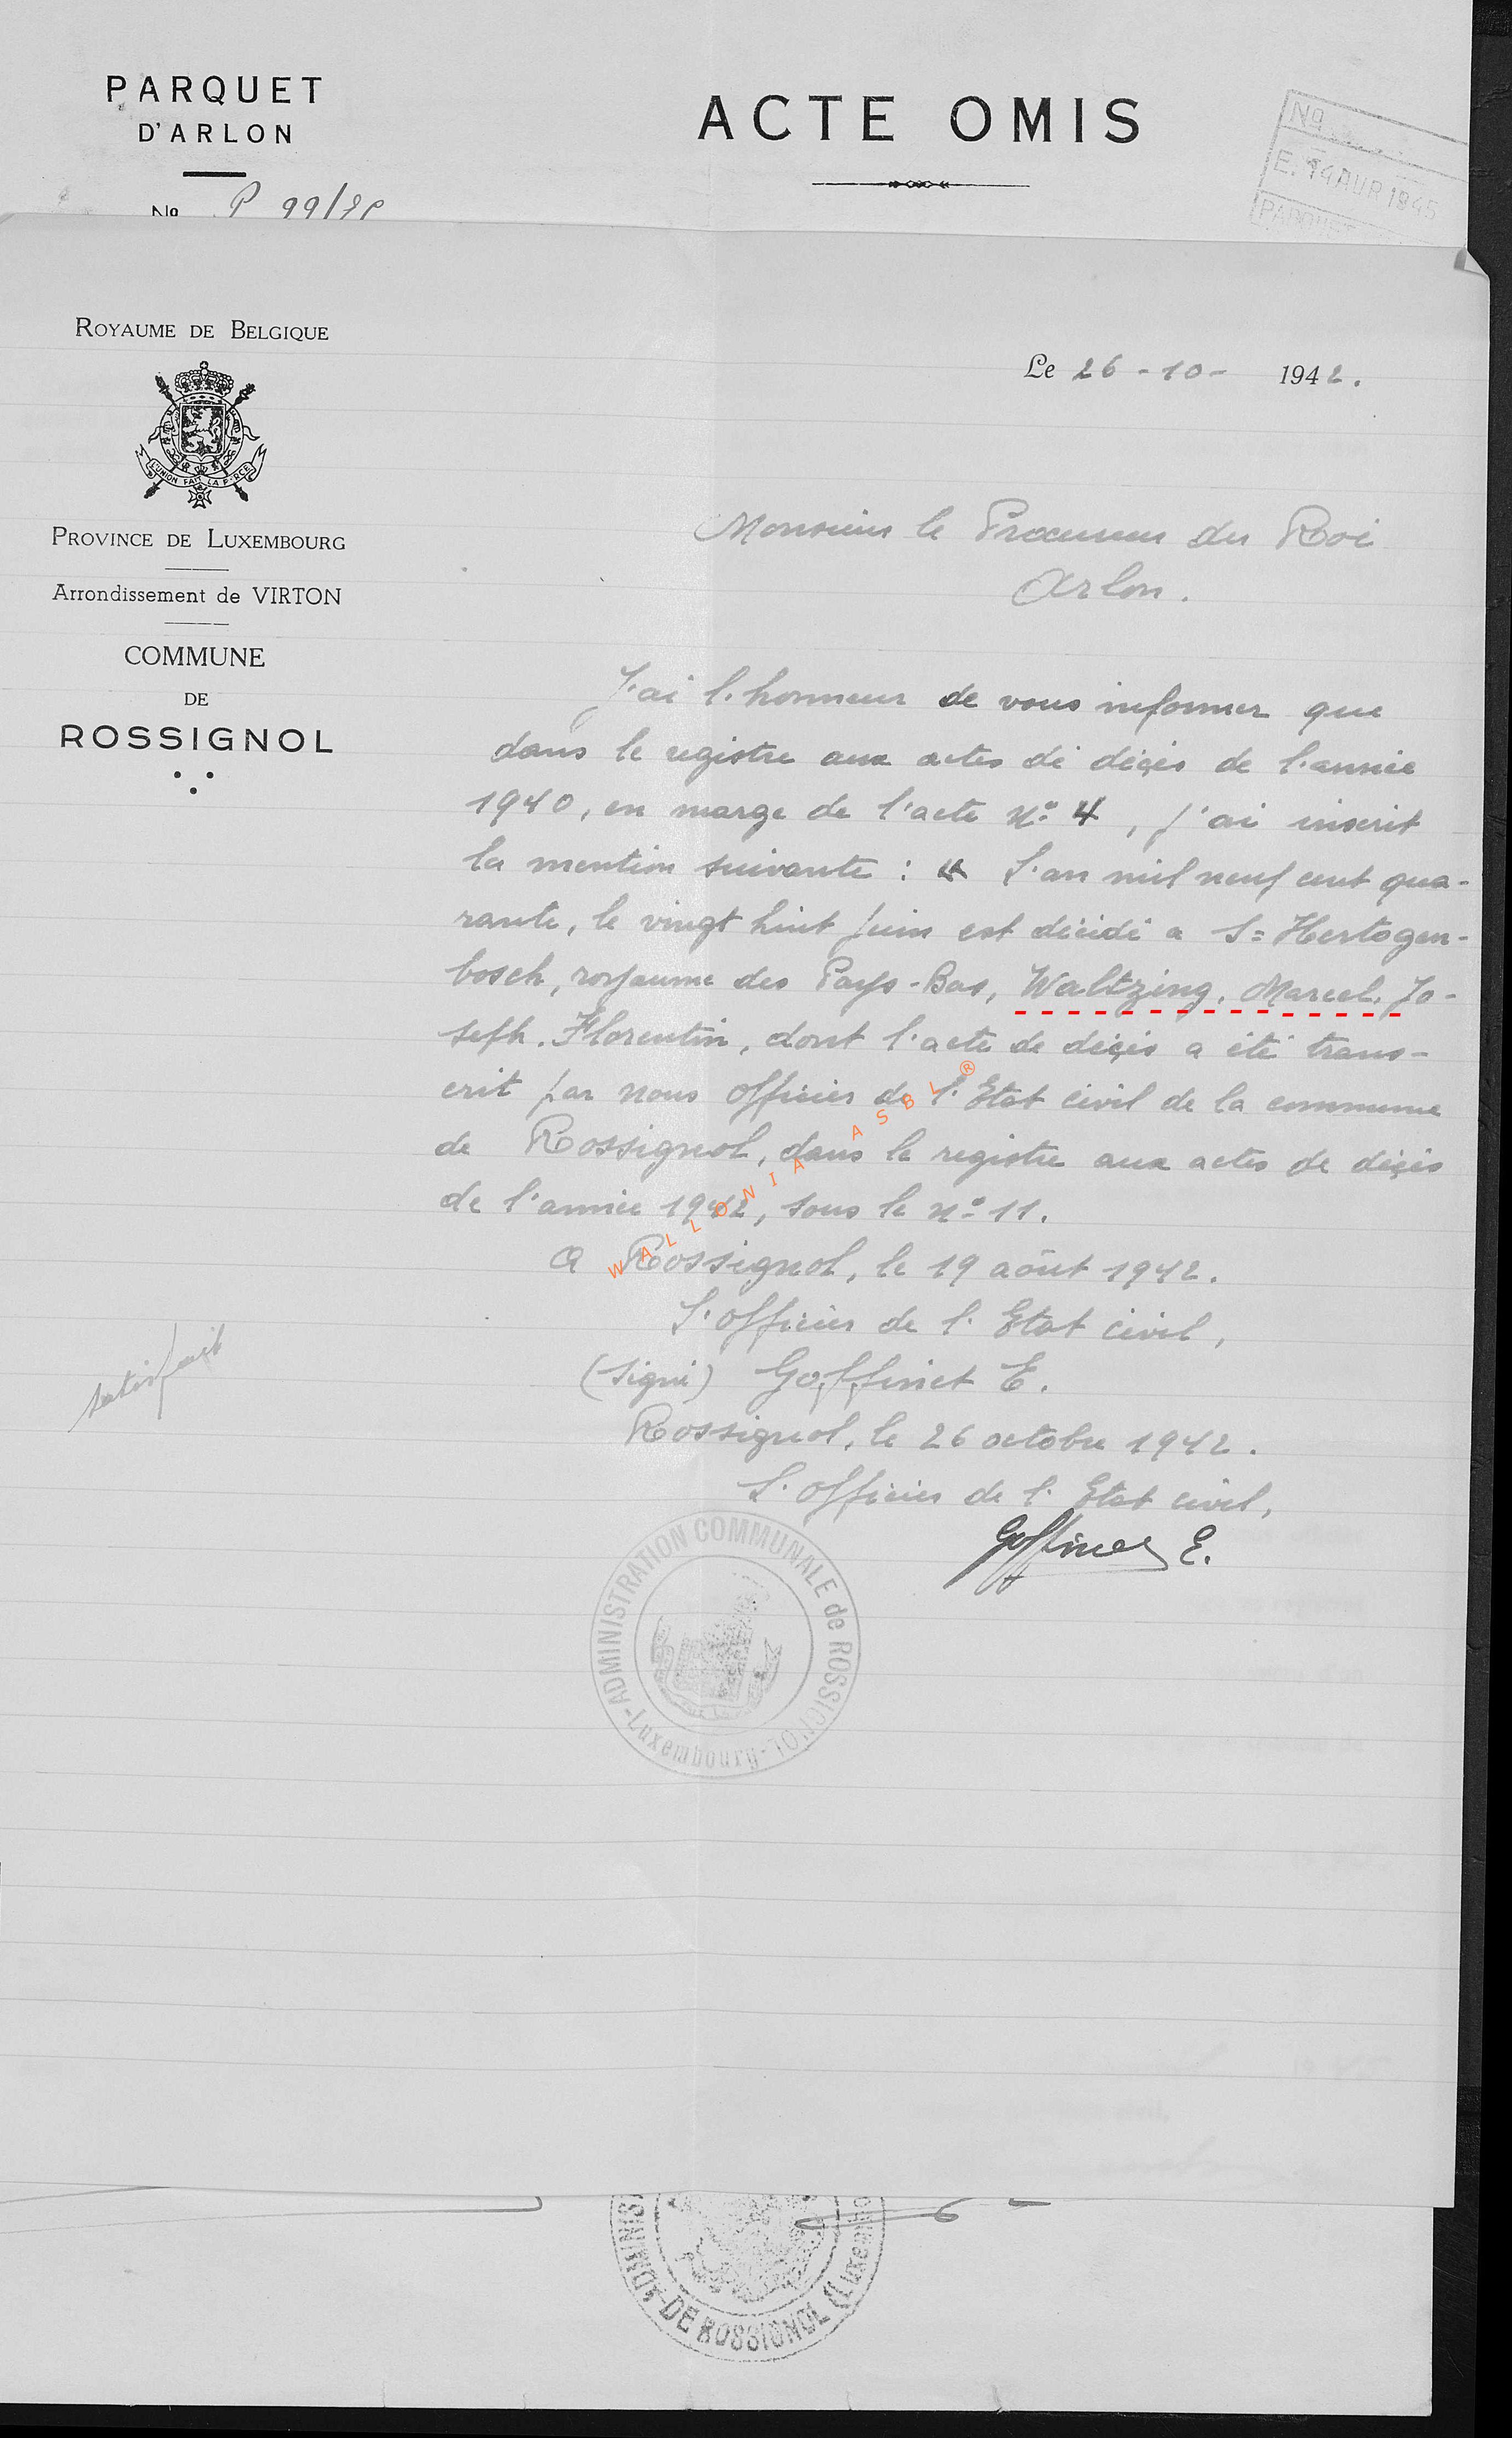 PARQUET
D'ARLON
No P 99/
ACTE OMIS
No
E. 14 AVR 1945
PARQUET
ROYAUME DE BELGIQUE
L'UNION FAIT LA FORCE
PROVINCE DE LUXEMBOURG
Arrondissement de VIRTON
COMMUNE
DE
ROSSIGNOL
Le 26 - 10 - 1942.
Monsieur le Procureur du Roi
Arlon.
J'ai l'honneur de vous informer que
dans le registre aux actes de décès de l'année
1940, en marge de l'acte No 4, j'ai inscrit
la mention suivante : « L'an mil neuf cent qua-
rante, le vingt huit juin est décédé a S= Hertogen-
bosch, royaume des Pays-Bas, Waltzing, Marcel, Jo-
seph. Florentin, dont l'acte de décès a été trans-
crit par nous officier de l'Etat civil de la commune
de Rossignol, dans le registre aux actes de décès
de l'année 1942, sous le no 11.
A Rossignol, le 19 août 1942.
L'officier de l'Etat civil,
(signé) Goffinet E.
Rossignol, le 26 octobre 1942.
L'officier de l'Etat civil,
Goffinet E.
satisfait
WALLONIA ASBL ®
ADMINISTRATION COMMUNALE de ROSSIGNOL
-Luxembourg-
DE ROSSIGNOL (Luxem